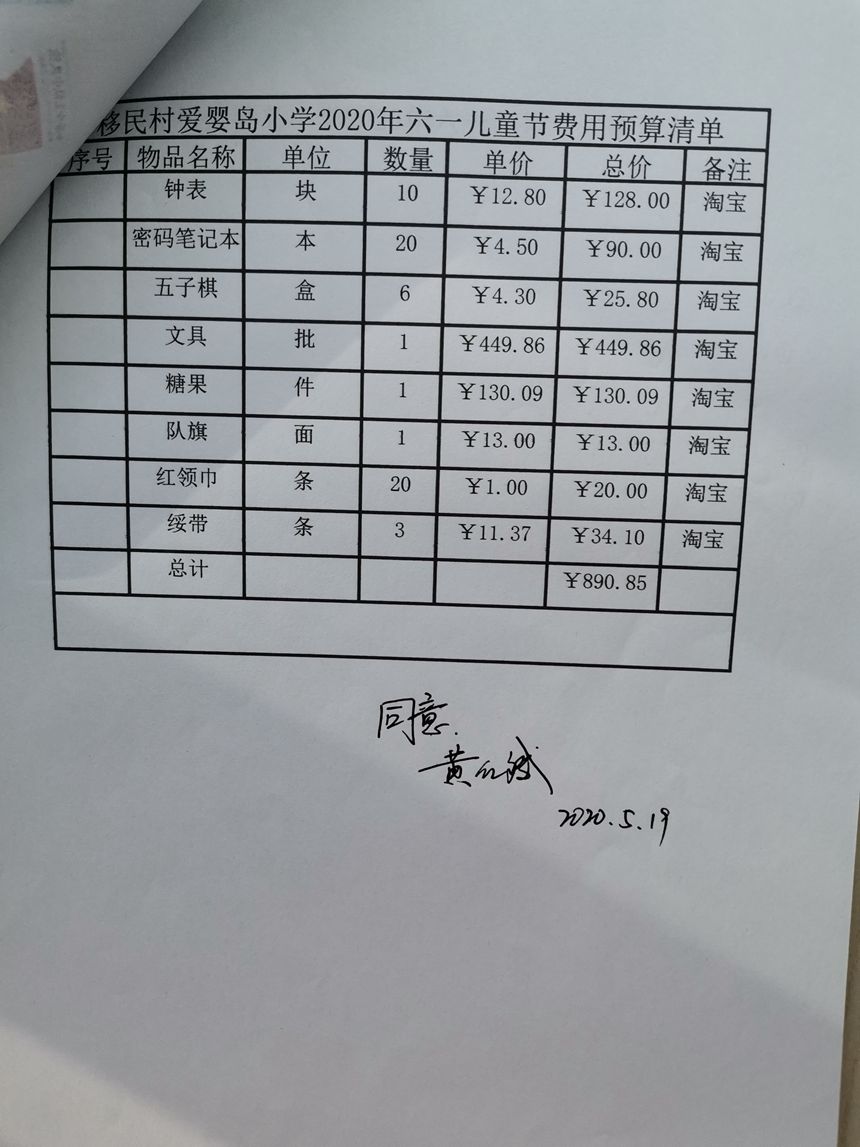 移民村爱婴岛小学2020年六一儿童节费用预算清单
序号 物品名称 单位 数量 单价 总价 备注
钟表 块 10 ￥12.80 ￥128.00 淘宝
密码笔记本 本 20 ￥4.50 ￥90.00 淘宝
五子棋 盒 6 ￥4.30 ￥25.80 淘宝
文具 批 1 ￥449.86 ￥449.86 淘宝
糖果 件 1 ￥130.09 ￥130.09 淘宝
队旗 面 1 ￥13.00 ￥13.00 淘宝
红领巾 条 20 ￥1.00 ￥20.00 淘宝
绥带 条 3 ￥11.37 ￥34.10 淘宝
总计 ￥890.85
同意.
2020.5.19